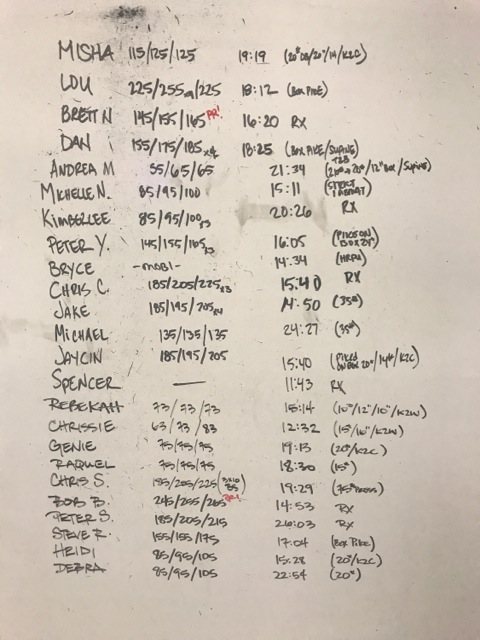 MISHA 115/125/125 19:19 (20" /20"/14/K2C)
LOU 225/255 /225 18:12 (BOX PIKE)
BRETT N 145/155/165 PR! 16:20 RX
DAN 155/175/185 x4 18:25 (BOX PIKE/SUPINE)
ANDREA M 55/65/65 21:34 (20"/12" BOX/SUPINE)
MICHELLE N. 85/95/100 15:11 (STRICT)
KIMBERLEE 85/95/100 x3 20:26 RX
PETER Y. 145/155/165 x3 16:05 (PIKE ON BOX 24")
BRYCE -MOBI- 14:34 (HRPU)
CHRIS C. 185/205/225 x3 15:40 RX
JAKE 185/195/205 x4 14:50 (35#)
MICHAEL 135/135/135 24:27 (35#)
JAYCIN 185/195/205 15:40 (PIKED ON BOX 20"/14#/K2C)
SPENCER — 11:43 RX
REBEKAH 73/73/73 15:14 (10"/12"/10"/K2W)
CHRISSIE 63/73/83 12:32 (15/10"/K2W)
GENIE 75/75/75 19:13 (20"/K2C)
RAQUEL 75/75/75 18:30 (15")
CHRIS S. 185/205/225 (3x10) 19:29 (75# PRESS)
BOB B. 245/255/265 PR! 14:53 RX
PETER S. 185/205/215 26:03 RX
STEVE R. 155/155/175 17:04 (BOX PIKE)
HEIDI 85/95/105 15:28 (20"/K2C)
DEBRA 85/95/105 22:54 (20")